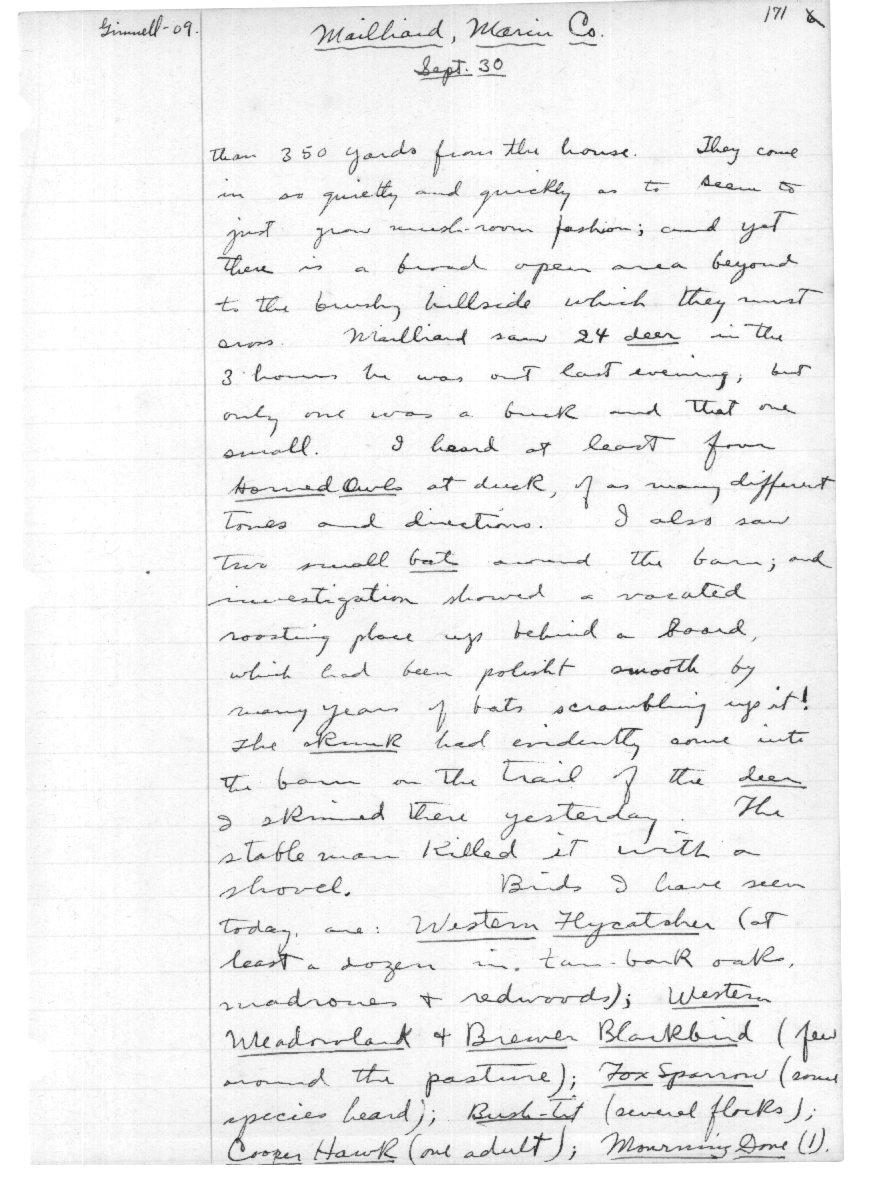 Grinnell-09.
171
Mailliard, Marin Co.
Sept. 30
than 350 yards from the house. They come
in so quietly and quickly as to seem to
just grow mush-room fashion; and yet
there is a broad open area beyond
to the brushy hillside which they must
cross. Mailliard saw 24 deer in the
3 hours he was out last evening; but
only one was a buck and that one
small. I heard at least four
Horned Owls at dusk, of as many different
tones and directions. I also saw
two small bat around the barn; and
investigation showed a vacated
roosting place up behind a board,
which had been polisht smooth by
many years of bats scrambling up it!
The skunk had evidently come into
the barn on the trail of the deer
I skinned there yesterday. The
stable man killed it with a
shovel. Birds I have seen
today, are: Western Flycatcher (at
least a dozen in tan-bark oaks,
madrones & redwoods); Western
Meadowlark & Brewer Blackbird (few
around the pasture); Fox Sparrow (some
species heard); Bush-tit (several flocks);
Cooper Hawk (one adult); Mourning Dove (1).